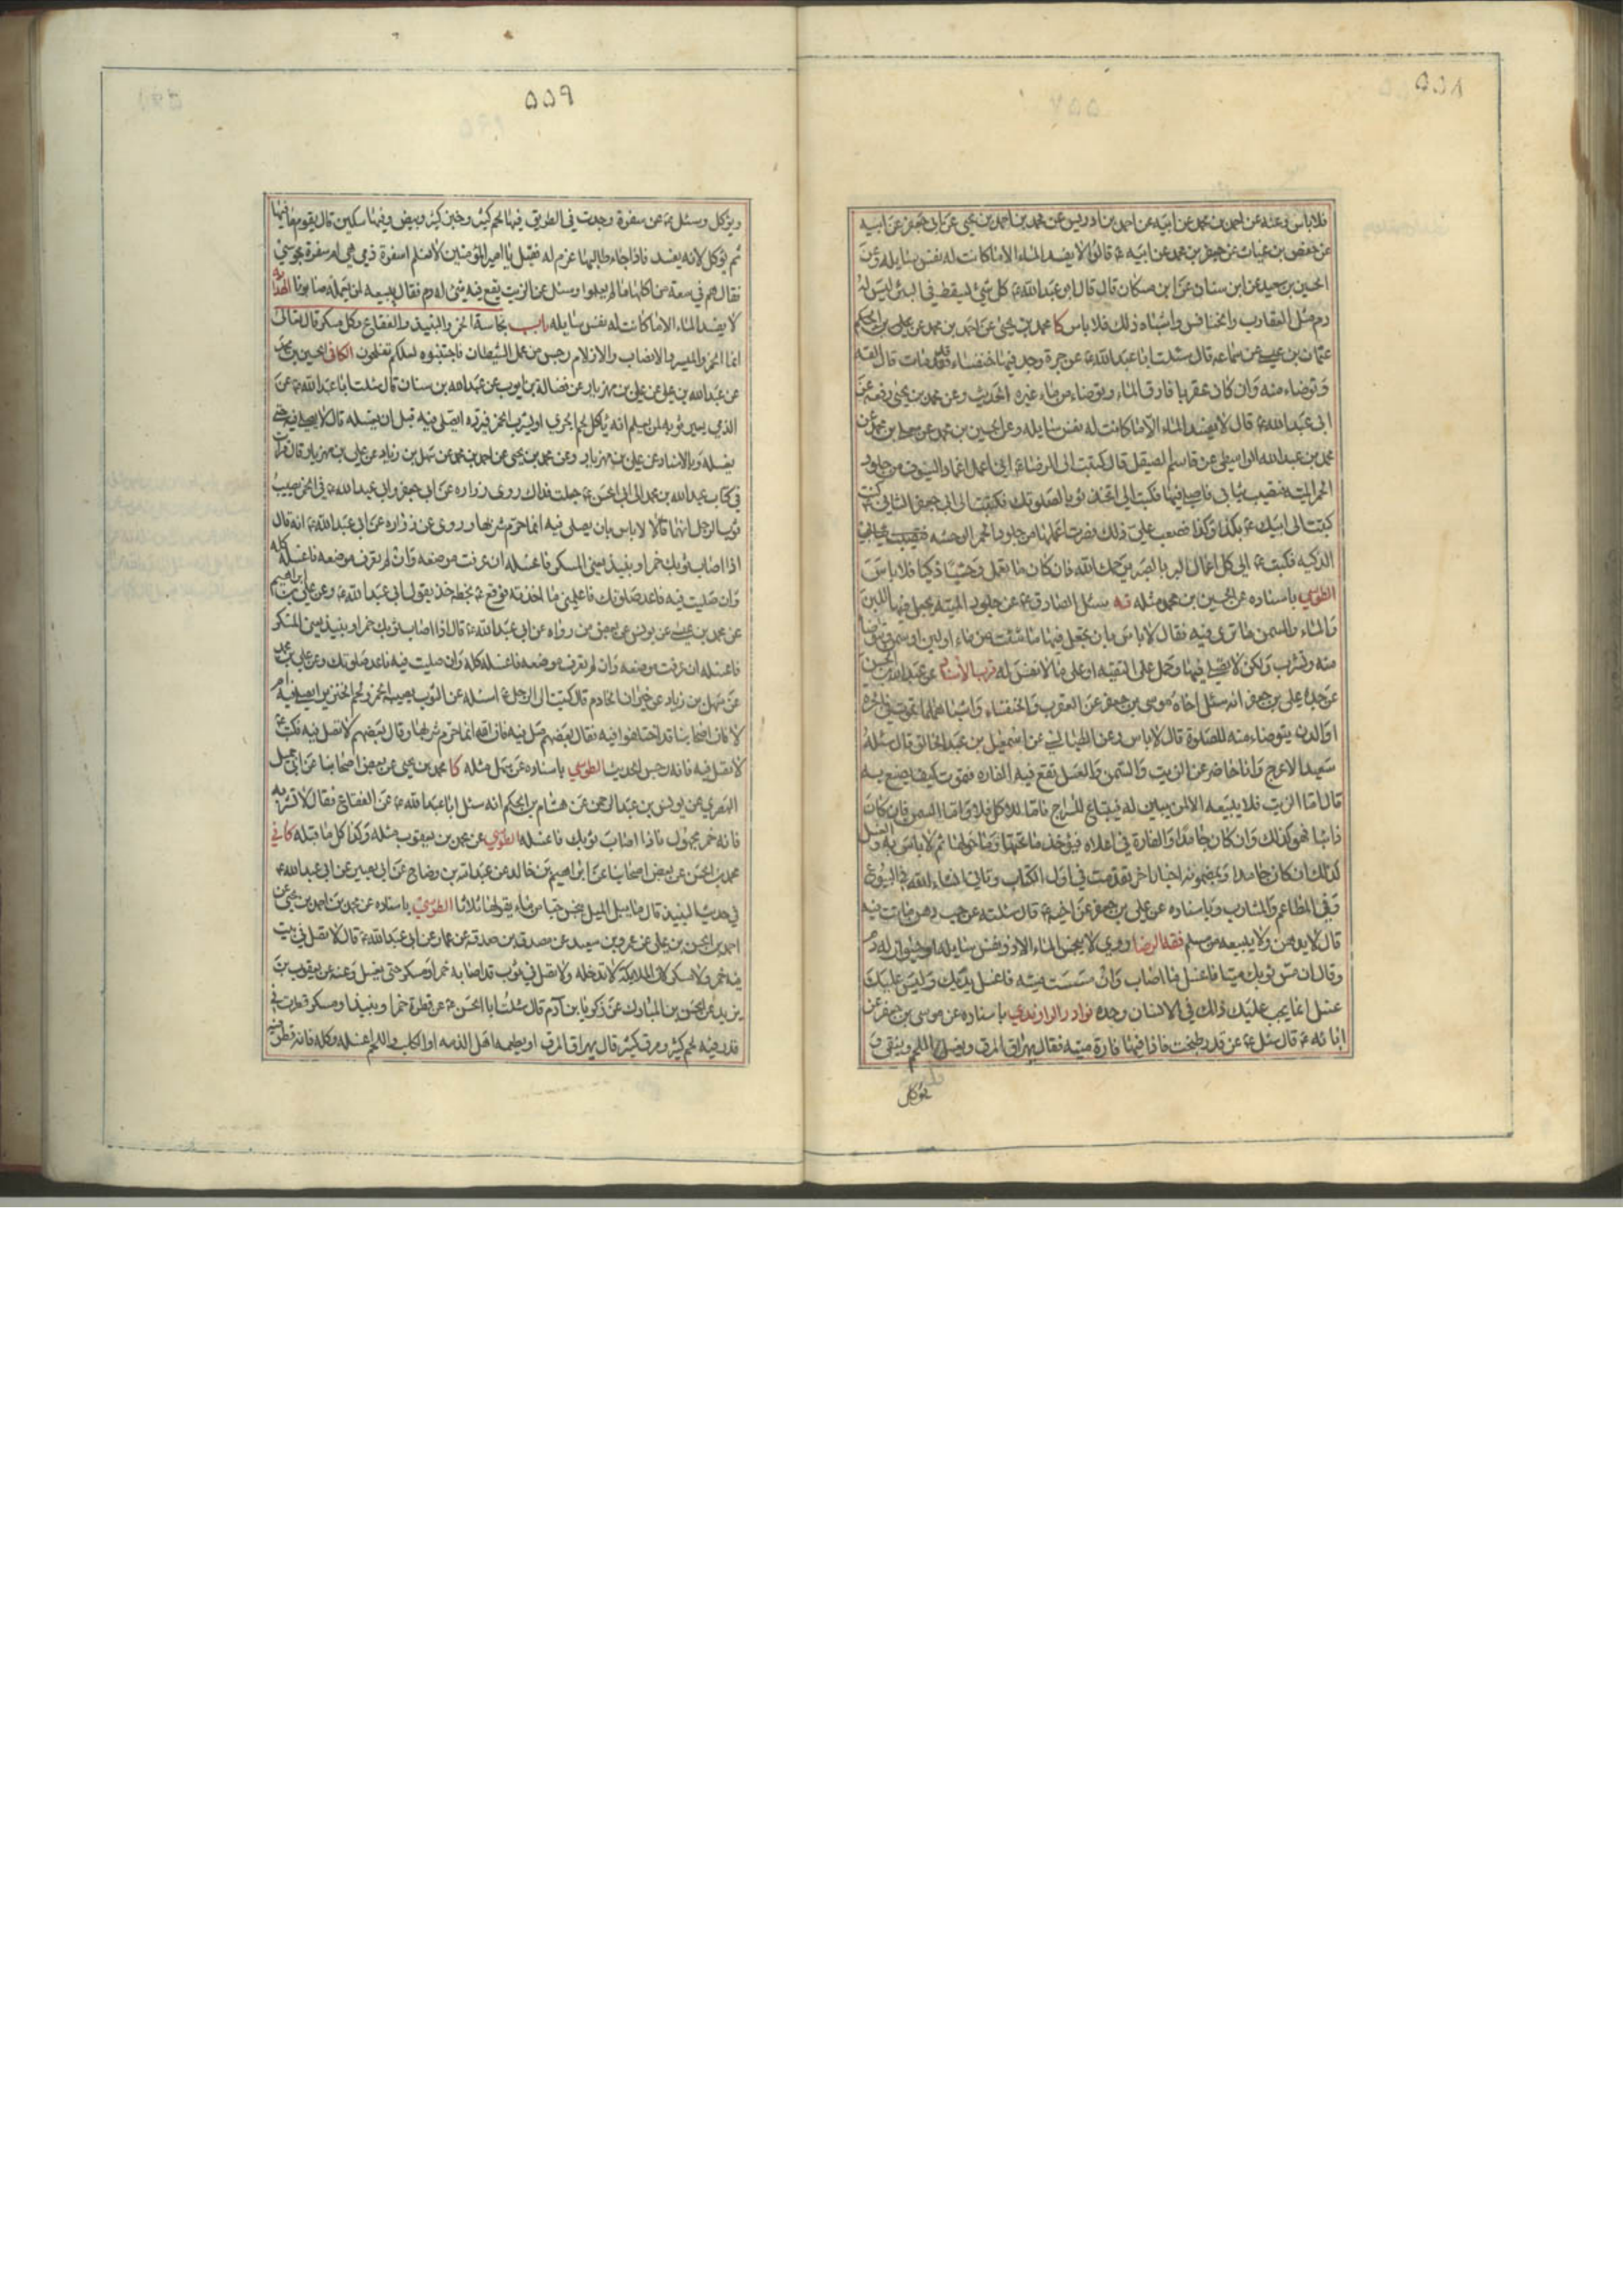 ۵۵۸
فلا باس وعنه عن احمد بن محمد عن ابيه عن احمد بن ادريس عن محمد بن احمد بن يحيى عن ابي جعفر عن ابيه
عن حفص بن غياث عن جعفر بن محمد عن ابيه ع قال لا يفسد الماء الا ما كانت له نفس سايله وعن
الحسين بن سعيد عن ابن سنان عن ابن مسكان قال قال ابو عبد الله ع كل شئ يسقط في البئر ليس له
دم مثل العقارب والخنافس واشباه ذلك فلا باس كا محمد بن يحيى عن احمد بن محمد عن علي بن الحكم
عثمان بن عيسى عن سماعه قال سئلت ابا عبد الله ع عن جرة وجد فيها خنفساء قد مات قال القه
وتوضاء منه وان كان عقربا فارق الماء وتوضاء من ماء غيره الحديث وعن محمد بن يحيى رفعه عن
ابي عبد الله ع قال لا يفسد الماء الا ما كانت له نفس سايله وعن الحسين بن محمد عن معلى بن محمد عن
محمد بن عبد الله الواسطي عن قاسم الصيقل قال كتبت الى الرضا ع اني اعمل اغماد السيوف من جلود
الحمر الميتة فتصيب ثيابي فاصلي فيها فكتب الي اتخذ ثوبا لصلوتك فكتبت الى ابي جعفر الثاني ع كنت
كتبت الى ابيك ع بكذا وكذا فصعب علي ذلك فصرت اعملها من جلود الحمر الوحشيه
الذكيه فكتب ع الي كل اعمال البر بالصبر يرحمك الله فان كان ما تعمل وحشيا ذكيا فلا باس
الطوسي باسناده عن الحسين بن محمد مثله فيه سئل الصادق ع عن جلود الميته يجعل فيها اللبن
والماء والسمن ما ترى فيه فقال لا باس بان تجعل فيها ما شئت من ماء او لبن او سمن وتتوضا
منه وتشرب ولكن لا تصلي فيها وحمل على التقيه او على ما لا نفس له قرب الاسناد عن عبد الله بن الحسن
عن جده علي بن جعفر انه سئل اخاه موسى بن جعفر عن العقرب والخنفساء واشباههما تموت في الجرة
او الدن يتوضاء منه للصلوة قال لا باس وعن الطيالسي عن اسمعيل بن عبد الخالق قال سئله
سعيد الاعرج وانا حاضر عن الزيت والسمن والعسل تقع فيه الفاره فتموت كيف يصنع به
قال اما الزيت فلا يبيعه الا لمن يبين له فيبتاع للسراج فاما للاكل فلا واما السمن فان كان
ذائبا فهو كذلك وان كان جامدا والفارة في اعلاه فيؤخذ ما تحتها وما حولها ثم لا باس به والعسل
كذلك ان كان جامدا وبمضمونه اخبار اخر تقدمت في اول الكتاب وتاتي انشاء الله في البيوع
وفي المطاعم والمشارب وباسناده عن علي بن جعفر عن اخيه ع قال سئلته عن حب دهن ماتت فيه
قال لا يدهن ولا يبيعه من مسلم فقه الرضا وروي لا ينجس الماء الا ذو نفس سايله او حيوان له دم
وقال ان مس ثوبك ميتا فاغسل ما اصاب وان مسست ميته فاغسل يديك وليس عليك
غسل انما يجب عليك ذلك في الانسان وحده نوادر الراوندي باسناده عن موسى بن جعفر عن
ابائه ع قال سئل ع عن قدر طبخت فاذا فيها فارة ميته فقال يهراق المرق ويغسل اللحم وينقى و
يؤكل
۵۵۹
ويؤكل وسئل ع عن سفرة وجدت في الطريق فيها لحم كثير وخبز كثير وبيض وفيها سكين قال يقوم ما فيها
ثم يؤكل لانه يفسد فاذا جاء طالبها غرم له فقيل يا امير المؤمنين لا نعلم اسفرة ذمي هي ام سفرة مجوسي
فقال هم في سعة من اكلها ما لم يعلموا وسئل عن الزيت يقع فيه شئ له دم فقال يبيعه لمن يعمله صابونا
لا يفسد الماء الا ما كانت له نفس سايله باب نجاسة الخمر والنبيذ والفقاع وكل مسكر قال تعالى
انما الخمر والميسر والانصاب والازلام رجس من عمل الشيطان فاجتنبوه لعلكم تفلحون الكافي الحسين بن محمد
عن عبد الله بن علي عن علي بن مهزيار عن فضالة بن ايوب عن عبد الله بن سنان قال سئلت ابا عبد الله ع عن
الذي يعير ثوبه لمن يعلم انه ياكل لحم الجري او يشرب الخمر فيرده ايصلي فيه قبل ان يغسله قال لا يصلي فيه حتى
يغسله وبالاسناد عن علي بن مهزيار وعن محمد بن يحيى عن احمد بن محمد عن سهل بن زياد عن علي بن مهزيار قال قرات
في كتاب عبد الله بن محمد الى ابي الحسن ع جعلت فداك روى زراره عن ابي جعفر وابي عبد الله ع في الخمر يصيب
ثوب الرجل انهما قالا لا باس بان يصلي فيه انما حرم شربها وروى عن زراره عن ابي عبد الله ع انه قال
اذا اصاب ثوبك خمر او نبيذ يعني المسكر فاغسله ان عرفت موضعه وان لم تعرف موضعه فاغسله كله
وان صليت فيه فاعد صلوتك فاعلمني ما اخذ به فوقع ع بخطه خذ بقول ابي عبد الله ع وعن علي بن ابراهيم
عن محمد بن عيسى عن يونس عن بعض من رواه عن ابي عبد الله ع قال اذا اصاب ثوبك خمر او نبيذ يعني المسكر
فاغسله ان عرفت موضعه وان لم تعرف موضعه فاغسله كله وان صليت فيه فاعد صلوتك وعن علي بن محمد
عن سهل بن زياد عن خيران الخادم قال كتبت الى الرجل ع اسئله عن الثوب يصيبه الخمر ولحم الخنزير ايصلى فيه ام
لا فان اصحابنا قد اختلفوا فيه فقال بعضهم صل فيه فان الله انما حرم شربها وقال بعضهم لا تصل فيه فكتب ع
لا تصل فيه فانه رجس الحديث الطوسي باسناده عن سهل مثله كا محمد بن يحيى عن بعض اصحابنا عن ابي جميل
البصري عن يونس بن عبد الرحمن عن هشام بن الحكم انه سئل ابا عبد الله ع عن الفقاع فقال لا تشربه
فانه خمر مجهول فاذا اصاب ثوبك فاغسله الطوسي عن محمد بن يعقوب مثله وكذا كل ما قبله كا في
محمد بن الحسن عن بعض اصحابنا عن ابراهيم بن خالد عن عبد الله بن وضاح عن ابي بصير عن ابي عبد الله ع
في حديث النبيذ قال ما يبل الميل ينجس حبا من ماء يقولها ثلاثا الطوسي باسناده عن محمد بن احمد بن يحيى عن
احمد بن الحسن بن علي عن عمرو بن سعيد عن مصدق بن صدقه عن عمار عن ابي عبد الله ع قال لا تصل في بيت
فيه خمر ولا مسكر لان الملائكة لا تدخله ولا تصل في ثوب قد اصابه خمر او مسكر حتى يغسل وعنه عن يعقوب بن
يزيد عن الحسن بن المبارك عن زكريا بن آدم قال سئلت ابا الحسن ع عن قطرة خمر او نبيذ او مسكر قطرت في
قدر فيه لحم كثير ومرق كثير قال يهراق المرق او يطعمه اهل الذمه او الكلاب واللحم اغسله وكله فانه قطرت